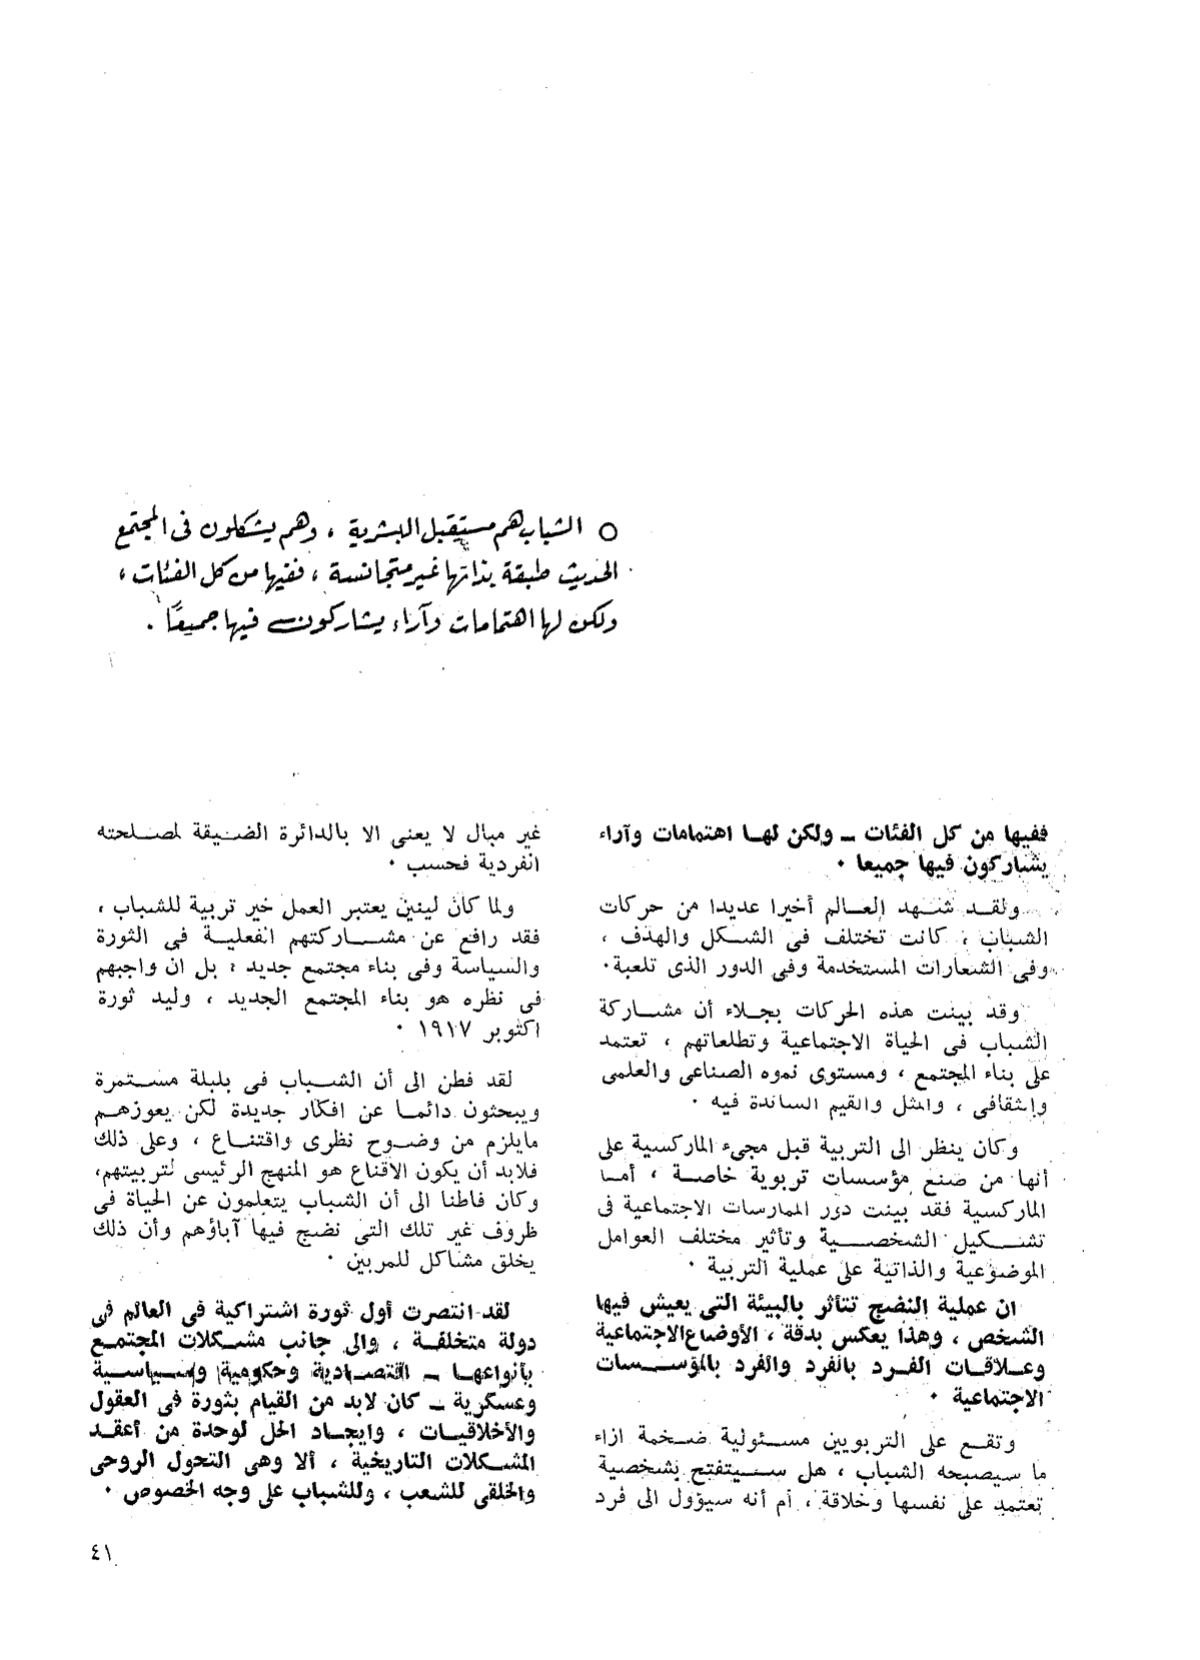 ○ الشباب هم مستقبل البشرية ، وهم يشكلون فى المجتمع
الحديث طبقة بذاتها غير متجانسة ، ففيها من كل الفئات ،
ولكن لها اهتمامات وآراء يشاركون فيها جميعًا .
ففيها من كل الفئات ــ ولكن لهـا اهتمامات وآراء
يشاركون فيها جميعا ٠
ولقـد شـهد العـالم أخيرا عديدا من حركات
الشباب ، كانت تختلف فى الشـكل والهدف ،
وفى الشعارات المستخدمة وفى الدور الذى تلعبة٠
وقد بينت هذه الحركات بجـلاء أن مشـاركة
الشباب فى الحياة الاجتماعية وتطلعاتهم ، تعتمد
على بناء المجتمع ، ومستوى نموه الصناعى والعلمى
والثقافى ، والمثل والقيم السائدة فيه ٠
وكان ينظر الى التربية قبل مجىء الماركسية على
أنها من صنع مؤسسات تربوية خاصـة ، أمـا
الماركسية فقد بينت دور الممارسات الاجتماعية فى
تشـكيل الشخصـية وتأثير مختلف العوامل
الموضوعية والذاتية على عملية التربية ٠
ان عملية النضج تتأثر بالبيئة التى يعيش فيها
الشخص ، وهذا يعكس بدقة ، الأوضاع الاجتماعية
وعـلاقـات الفـرد بالفرد والفرد بالمؤسـسات
الاجتماعية ٠
وتقـع على التربويين مسـئولية ضـخمة ازاء
ما سيصبحه الشباب ، هل سـيتفتح بشخصية
تعتمد على نفسها وخلاقة ، أم أنه سيؤول الى فرد
غير مبال لا يعنى الا بالدائرة الضـيقة لمصـلحته
الفردية فحسب ٠
ولما كان لينين يعتبر العمل خير تربية للشباب ،
فقد رافع عن مشـاركتهم الفعليـة فى الثورة
والسياسة وفى بناء مجتمع جديد ، بل ان واجبهم
فى نظره هو بناء المجتمع الجديد ، وليد ثورة
اكتوبر ١٩١٧ ٠
لقد فطن الى أن الشـباب فى بلبلة مسـتمرة
ويبحثون دائمـا عن افكار جديدة لكن يعوزهـم
مايلزم من وضـوح نظرى واقتنـاع ، وعلى ذلك
فلابد أن يكون الاقناع هو المنهج الرئيسى لتربيتهم،
وكان فاطنا الى أن الشباب يتعلمون عن الحياة فى
ظروف غير تلك التى نضج فيها آباؤهم وأن ذلك
يخلق مشاكل للمربين ٠
لقد انتصرت أول ثورة اشتراكية فى العالم فى
دولة متخلفـة ، والى جانب مشـكلات المجتمـع
بأنواعهـا ــ اقتصـادية وحكومية وسـياسـية
وعسكرية ــ كان لابد من القيام بثورة فى العقول
والأخلاقيـات ، وايجـاد الحل لوحدة من أعقـد
المشـكلات التاريخية ، ألا وهى التحول الروحى
والخلقى للشعب ، وللشباب على وجه الخصوص ٠
٤١